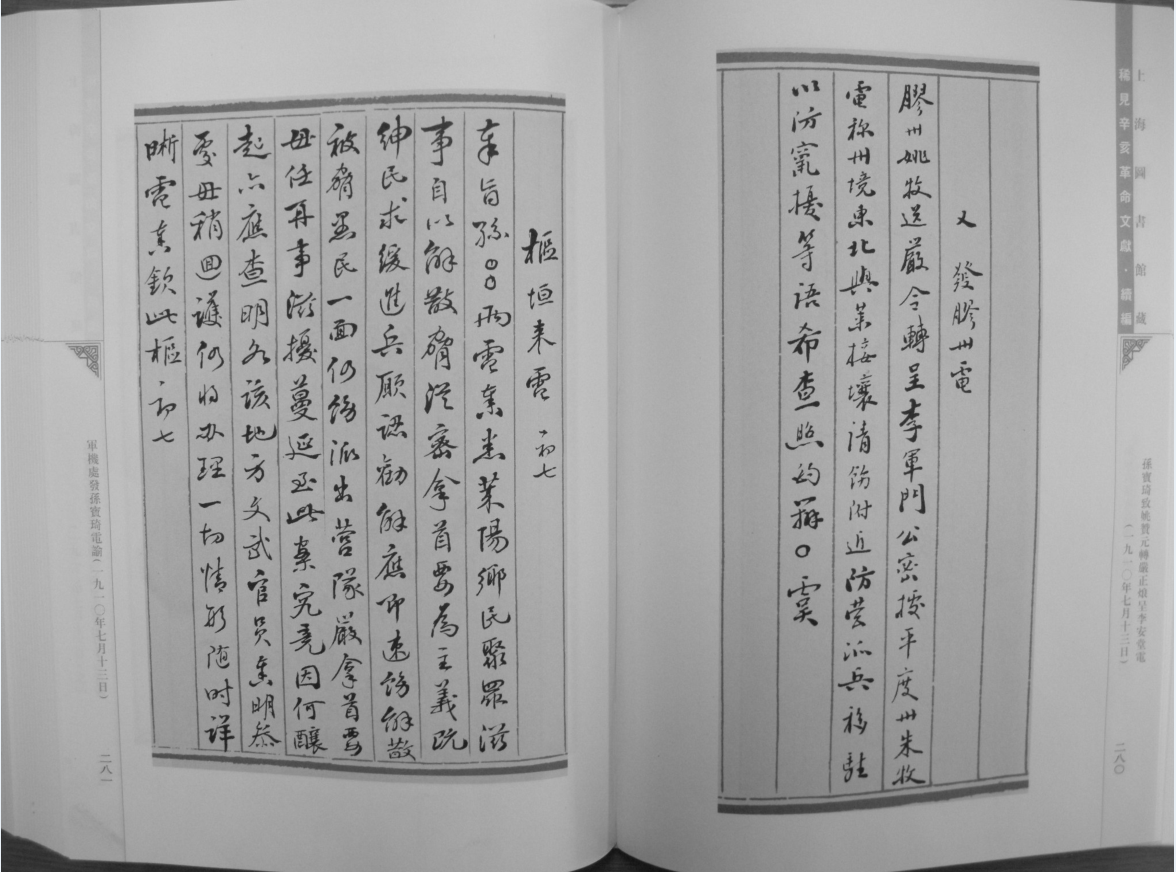 上海圖書館藏
稀見辛亥革命文獻·續編
孫寶琦致姚贊元轉嚴正煊呈李安堂電
(一九一〇年七月十三日)
二八〇
又 發膠州電
膠州姚牧送嚴令轉呈李軍門公密接平度州朱牧
電称州境東北與萊接壤請飭附近防營派兵移駐
以防竄擾等語希查照酌辦〇虞
樞垣来電 初七
奉旨孫〇〇兩電奏悉萊陽鄉民聚眾滋
事自以解散脅從密拿首要為主義既
紳民求緩進兵願認勸解應即速飭解散
被脅愚民一面仍飭派出營隊嚴拿首要
毋任再事滋擾蔓延至此案究竟因何釀
起亦應查明各該地方文武官員奏明叅
處毋稍迴護仍將办理一切情形随时详
晰電奏欽此樞 初七
軍機處發孫寶琦電諭(一九一〇年七月十三日)
二八一